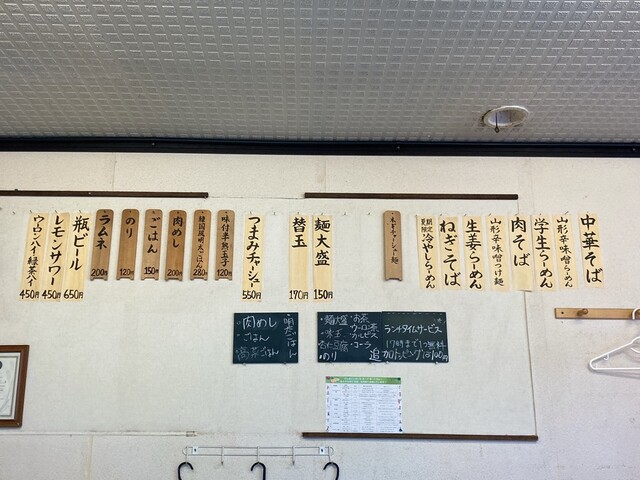 中華そば
山形辛味噌らーめん
学生らーめん
肉そば
山形辛味噌つけ麺
生姜らーめん
ねぎそば
夏季限定
冷やしらーめん
麺大盛
150円
替玉
170円
つまみチャーシュー
550円
味付半熟玉子
120円
韓国風明太ごはん
280円
肉めし
200円
ごはん
150円
のり
120円
ラムネ
200円
瓶ビール
650円
レモンサワー
450円
ウーロンハイ・緑茶ハイ
450円
・肉めし
・ごはん
明太ごはん
ランチタイムサービス
17時まで1つ無料
・麺大盛
・味玉
・のり
・お茶
・ウーロン茶
・カルピス
・コーラ
追加トッピングは100円